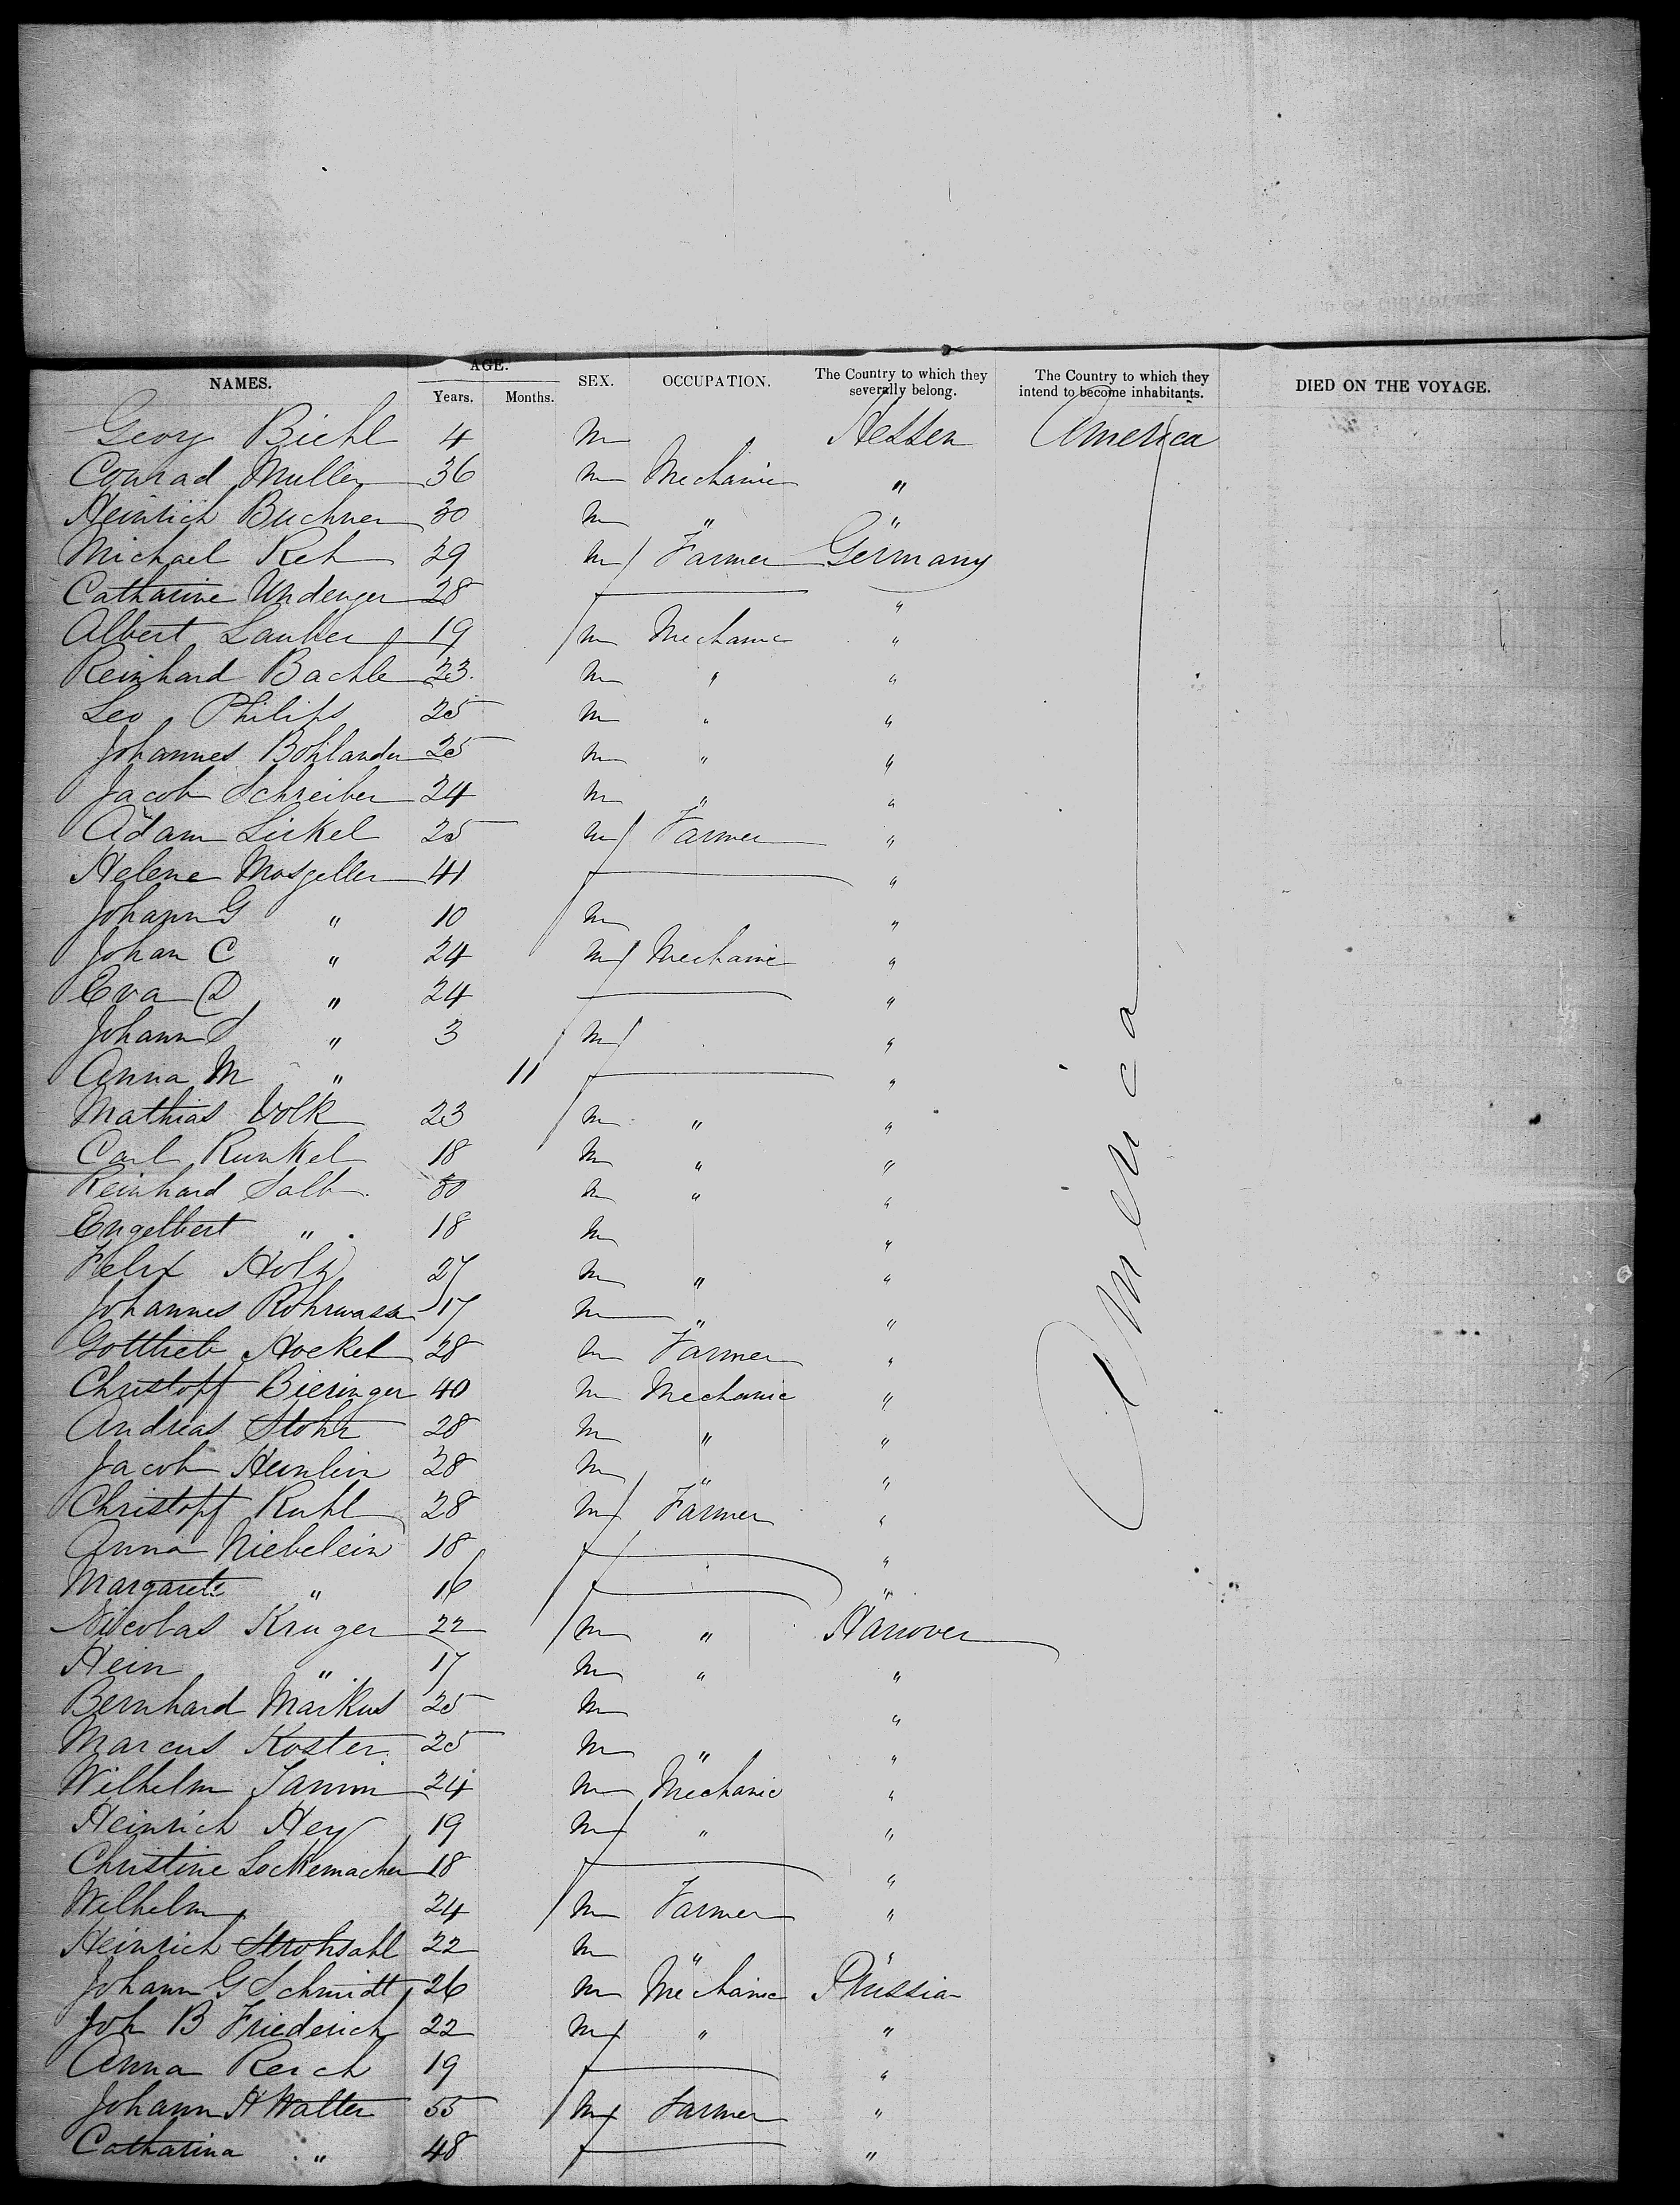 NAMES. AGE. Years. Months. SEX. OCCUPATION. The Country to which they severally belong. The Country to which they intend to become inhabitants. DIED ON THE VOYAGE.
Georg Biehl 4 m Hessen America
Conrad Muller 36 m Mechanic "
Heinrich Buchner 30 m " "
Michael Reh 29 m Farmer Germany
Catharine 28 f "
Albert Lauber 19 m Mechanic "
Reinhard Bachle 23 m " "
Leo Philips 25 m " "
Johannes Bohlander 25 m " "
Jacob Schreiber 24 m " "
Adam Lickel 25 m Farmer "
Helene Mosgeller 41 f "
Johann G " 10 m "
Johan C " 24 m Mechanic "
Eva D " 24 f "
Johann S " 3 m "
Anna M " 11 f "
Mathias Volk 23 m " "
Carl Runkel 18 m " "
Reinhard Salb 30 m " "
Engelbert " 18 m "
Felix Holz 27 m " "
Johannes Rohrwasser 17 m " "
Gottlieb Hockel 28 m Farmer "
Christoff Bieringer 40 m Mechanic "
Andreas Stohr 28 m " "
Jacob Heinlein 28 m " "
Christoff Ruhl 28 m Farmer "
Anna Niebelein 18 f "
Margareth " 16 f "
Nicolas Kruger 22 m " Hanover
Hein " 17 m " "
Bernhard Markus 25 m "
Marcus Koster 25 m " "
Wilhelm Tamm 24 m Mechanic "
Heinrich Hey 19 m " "
Christine Lockemacher 18 f "
Wilhelm 24 m Farmer "
Heinrich Strohsahl 22 m " "
Johann G Schmidt 26 m Mechanic Prussia
Joh B Friederich 22 m " "
Anna Reich 19 f "
Johann H Walter 55 m Farmer "
Catharina " 48 f "
America